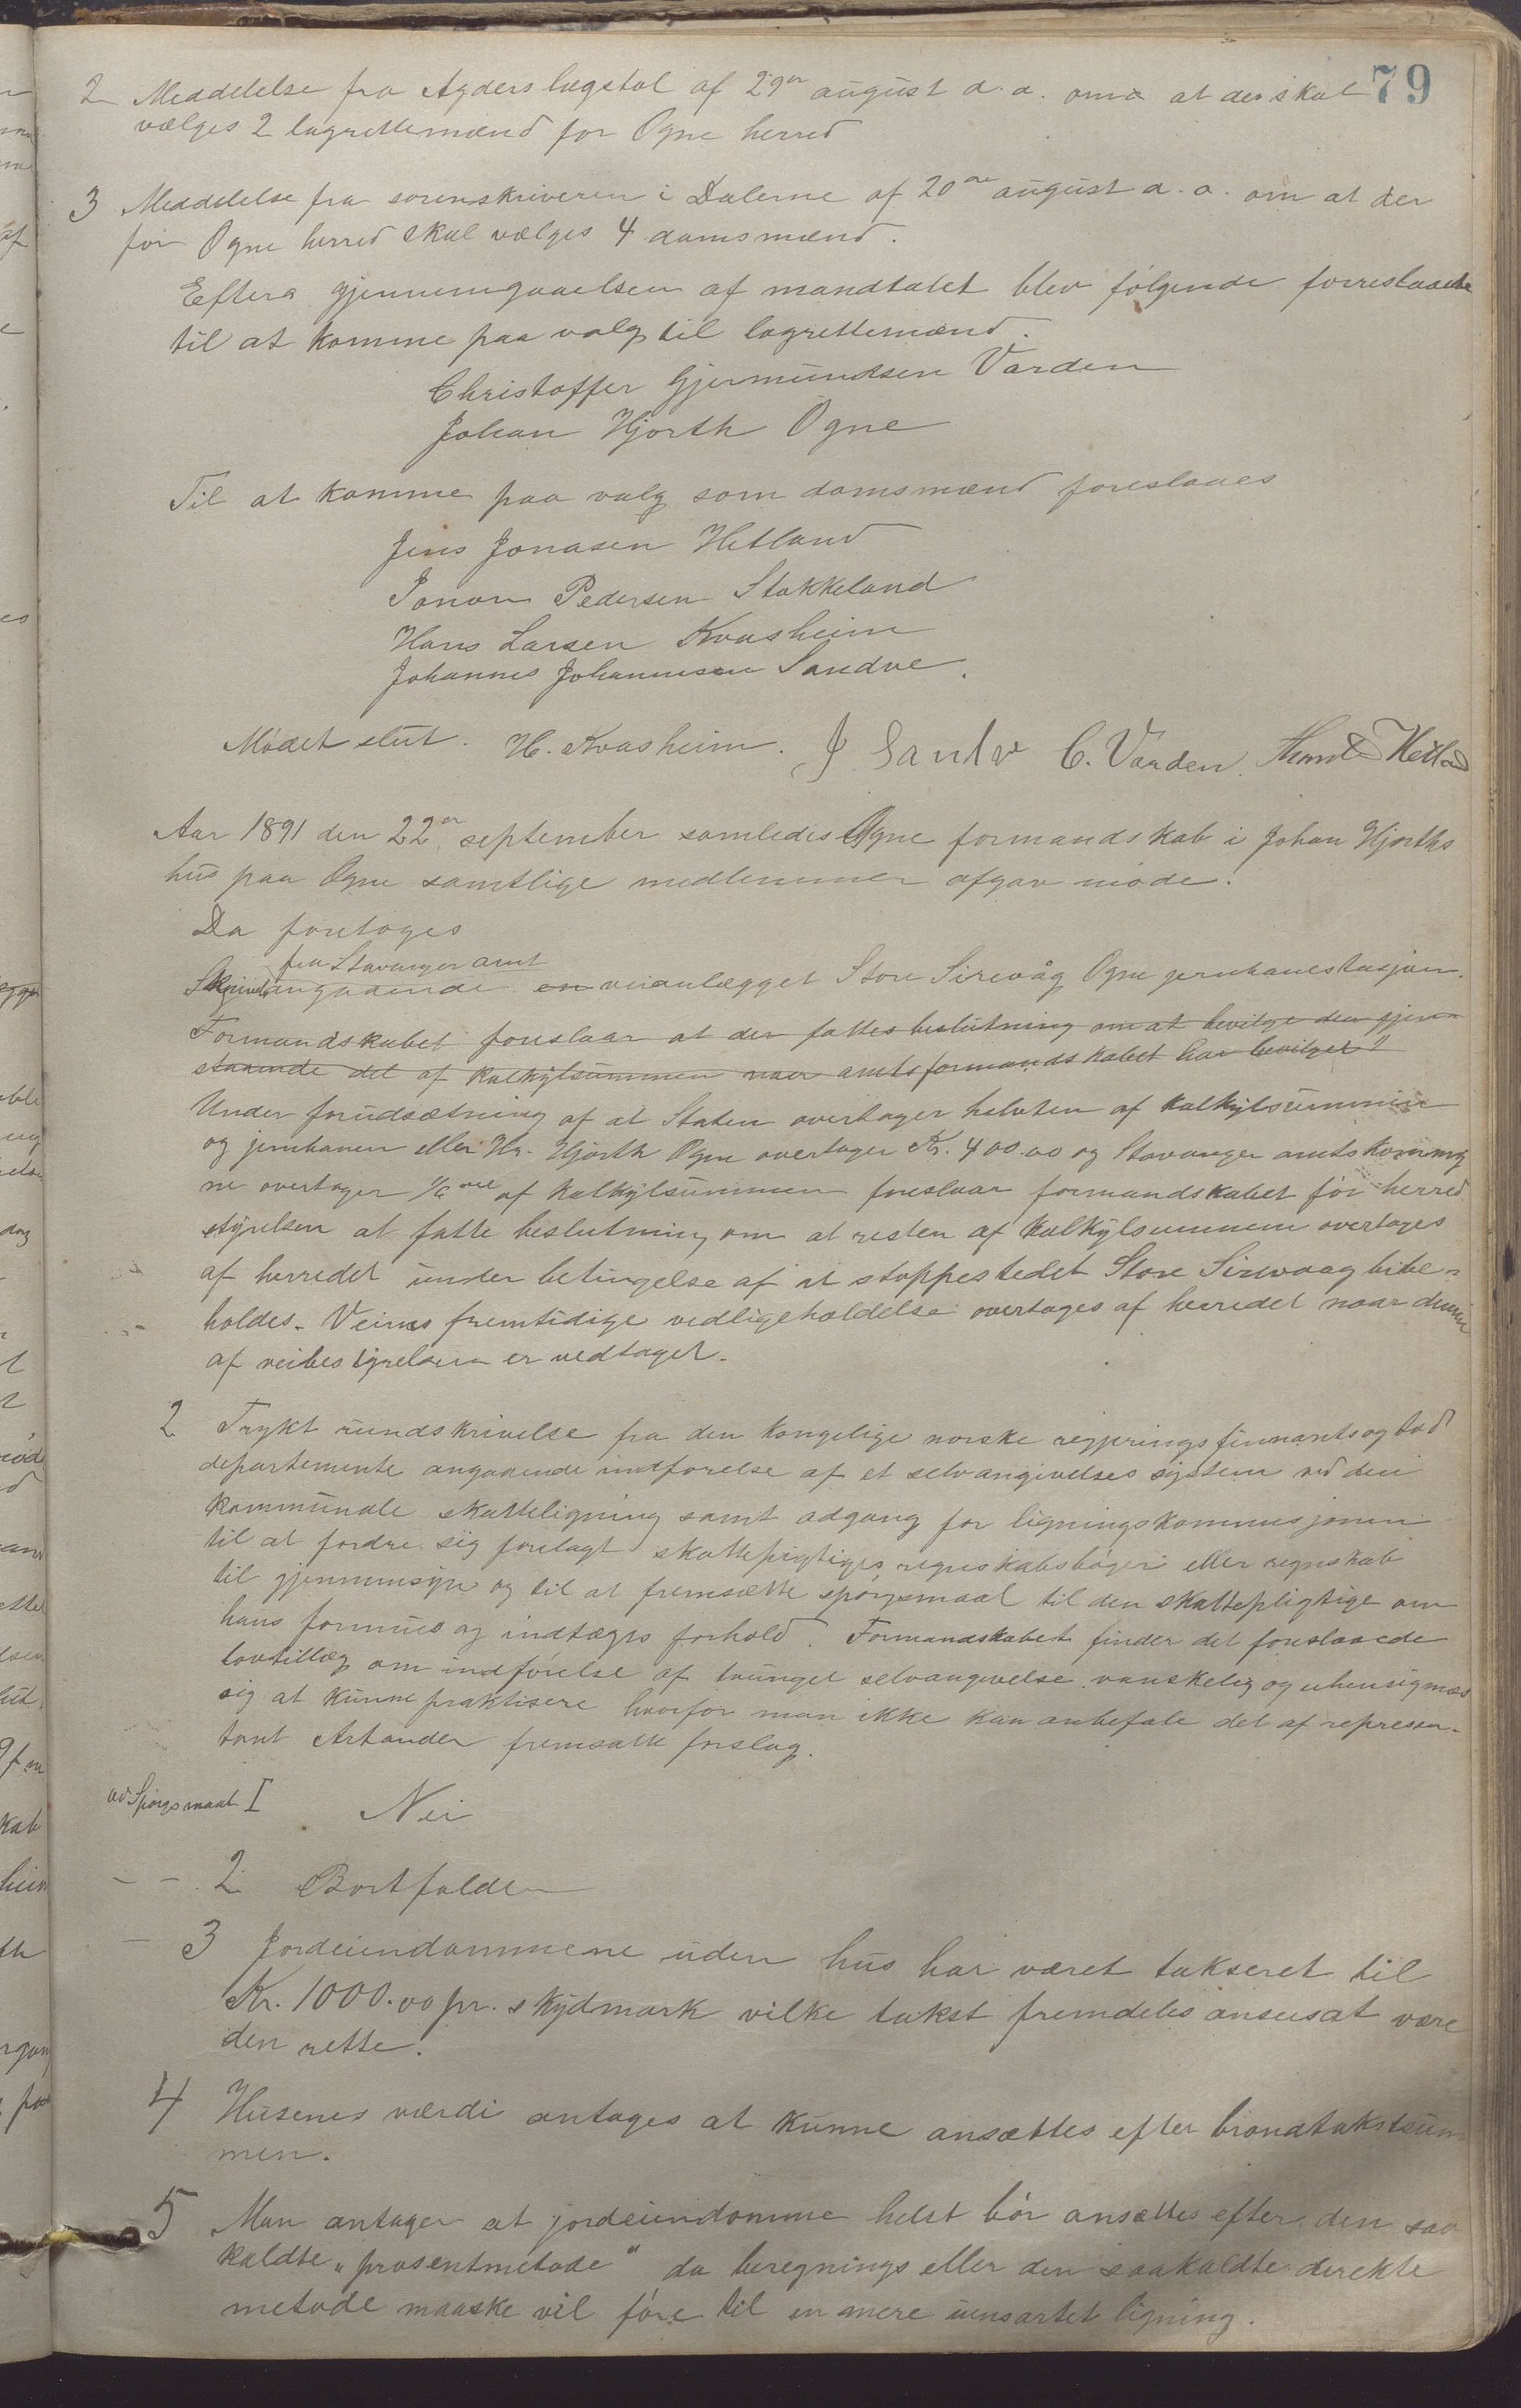 79
2 Meddelelse fra Agders lagstol af 29de august d. a. om at der skal
vælges 2 lagrettemænd for Ogne herred
3 Meddelelse fra sorenskriveren i Dalerne af 20de august d. a. om at der
for Ogne herred skal vælges 4 domsmænd.
Efter gjennemgaaelsen af mandtalet blev følgende forreslaaede
til at komme paa valg til lagrettemænd.
Christoffer Gjermundsen Varden
Johan Hjorth Ogne
Til at komme paa valg som domsmænd foreslaaes
Jens Jonasen Hetland
Jonas Pedersen Stokkeland
Hans Larsen Kvasheim
Johannes Johannesen Sandve.
Mødet slut. H. Kvasheim. J Sandv C. Varden. Hetland
Aar 1891 den 22de september samledes Ogne formandskab i Johan Hjorths
hus paa Ogne samtlige medlemmer afgav møde.
Da foretoges
fra Stavanger amt
angaaende en veianlægget Store Sirevåg Ogne jernbanestasjon.
Formandskabet foreslaar at der fattes beslutning om at bevilge den gjen-
staaende del af kalkylsummen naar amtsformandskabet har bevilget
Under forudsætning af at Staten overtager halvten af kalkylsummen
og jernbanen eller Hr. Hjorth Ogne overtager Kr. 400.00 og Stavanger amtskommu
ne overtager 1/6 del af kalkylsummen foreslaar formandskabet for herred
styrelsen at fatte beslutning om at resten af kalkylsummen overtages
af herredet under betingelse af at stoppestedet Store Sirevaag bibe-
holdes. Veiens fremtidige vedligeholdelse overtages af herredet naar denne
af veibestyrelsen er vedtaget.
2 Trykt rundskrivelse fra den kongelige norske regjerings finnants og told
departemente angaaende indførelse af et selvangivelses system ved den
kommunale skatteligning samt adgang for ligningskommisjonen
til at fordre sig forelagt skattepligtiges regnskabsbøger eller regnskab
til gjennemsyn og til at fremsætte spørgsmaal til den skattepligtige om
hans formues og indtægts forhold. Formandskabet finder det foreslaaede
lovtillæg om indførelse af tvunget selvangivelse vanskelig og uhensigmæs
sig at kunne praktisere hvorfor man ikke kan anbefale det af represen-
tant Artander fremsatte forslag.
ad Spørgsmaal I Nei
- - 2 Bortfalder
- 3 Jordeiendommene uden hus har været takseret til
Kr. 1000.00 pr. skyldmark vilke takst fremdeles ansees at være
den rette.
4 Husenes værdi antages at kunne ansættes efter brandtakstsum
men.
5 Man antager at jordeiendomme helst bør ansættes efter den saa
kaldte "prosentmetode" da beregnings eller den saakaldte direkte
metode maaske vil føre til en mere uensartet ligning.